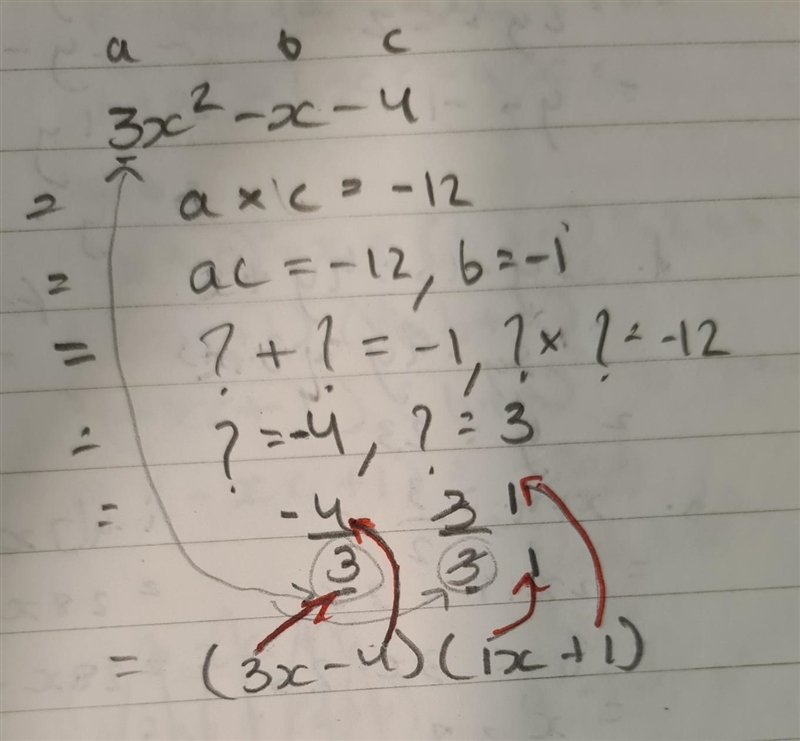 a b c
3x² - x - 4
= a × c = -12
= ac = -12, b = -1
= ? + ? = -1, ? × ? = -12
= ? = -4, ? = 3
= -4/3 3/3 1/1
= (3x - 4)(1x + 1)